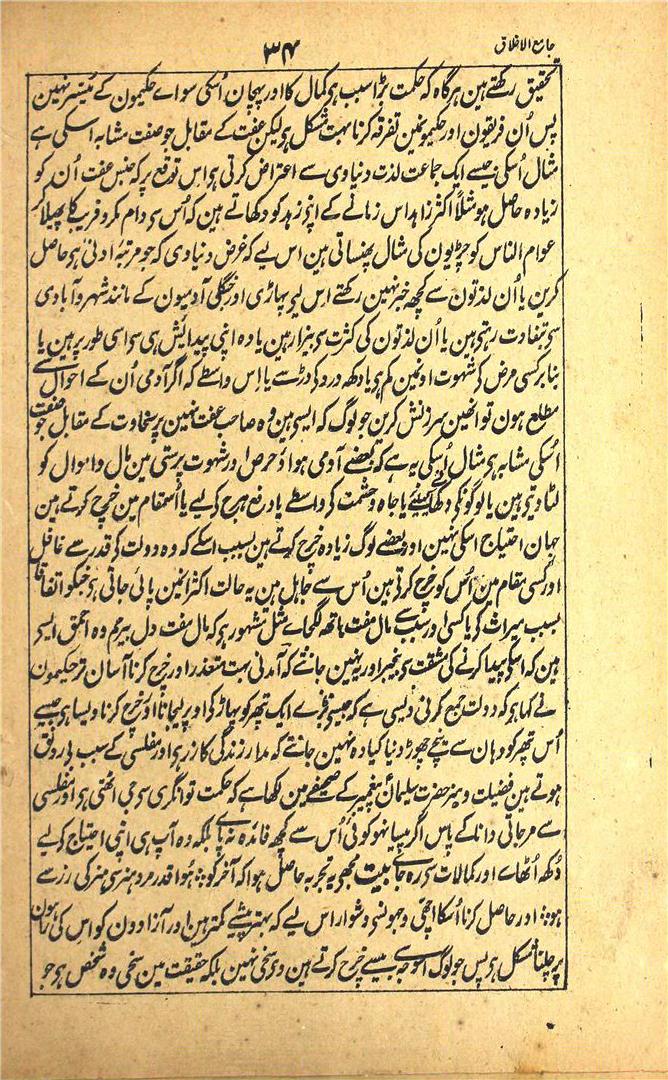 جامع الاخلاق
۳۴
تحقیق رکھتے ہین ہرگاہ کہ حکمت بڑا سبب ہی کمال کا اور پہچان اُسکی سواے حکیمون کے میسر نہین
پس اُن فریقون اور حکیمونمین تفرقہ کرنا بہت مشکل ہی لیکن عفت کے مقابل جو صفت مشابہ اسکی ہے
مثال اُسکی جیسے ایک جماعت لذت دنیاوی سے اعتراض کرتی ہی اس توقع پر کہ جنس عفت اُن کو
زیادہ حاصل ہو مثلاً اکثر زاہد اس زمانے کے اپنی زہد کو دکھاتے ہین کہ اُس سی دام مکر و فریب کا پھیلا کر
عوام الناس کو چڑیون کی مثال پھنساتی ہین اس لیے کہ غرض دنیاوی کہ جو مرتبۂ ادنیٰ ہی حاصل
کرین یا اُن لذتون سے کچھ خبر نہین رکھتے اس لیی پہاڑی اور جنگلی آدمیون کے مانند شہر و آبادی
سی تفاوت رہتی ہین یا اُن لذتون کی کثرت سی بیزار ہین یا وہ اپنی پیدایش ہی سی اسی طور پر ہین یا
بنا بر کسی مرض کی شہوت اونمین کم ہی یا دکھ درد کی ڈر سے یا اس واسطے کہ اگر آدمی اُن کے احوال سے
مطلع ہون تو انھین سرزنش کرین جو لوگ کہ ایسی ہین وہ صاحب عفت نہین پر سخاوت کے مقابل جو صفت
اُسکی مشابہ ہی مثال اُسکی یہ ہے کہ بعضے آدمی ہوا و حرص اور شہوت پرستی مین مال و اموال کو
لٹا دیتی ہین یا لوگونکی دکھانیکے لیے یا جاہ و حشمت کی واسطے یا دفع ہرج کے لیے یا اُس مقام مین خرچ کرتے ہین
جہان احتیاج اسکی نہین اور بعضے لوگ زیادہ خرچ کرتے ہین بسبب اسکے کہ وہ دولت کی قدر سے غافل
اور کسی مقام مین اُس کو خرچ کرتی ہین اُس سے جاہل ہین یہ حالت اکثر انمین پائی جاتی ہی جنکو اتفاقاً
بسبب میراث کی یا کسی اور سبب سے مال مفت ہاتھ لگجاے مثل مشہور ہی کہ مال مفت دل بیرحم وہ احمق ایسی
ہین کہ اسکی پیدا کرنے کی مشقت سی بیخبر اور یہ نہین جانتے کہ آمدنی بہت متعذر اور خرچ کرنا آسان تر حکیمون
نے کہا ہی کہ دولت جمع کرنی ویسی ہے کہ جیسی بڑے ایک پتھر کو پہاڑ کی اوپر لیجانا اور خرچ کرنا ویسا ہی جیسے
اُس پتھر کو وہان سے نیچے چھوڑ دینا کیا وہ نہین جانتے کہ مدار زندگی کا زر ہی اور مفلسی کے سبب بی رونق
ہوتے ہین فضیلت و ہنر حضرت سلیمان پیغمبر کے صحیفے مین لکھا ہے کہ حکمت توانگری سی جی اٹھتی ہی اور مفلسی
سے مر جاتی دانا کے پاس اگر پیسا نہو کوئی اُس سے کچھ فائدہ نہ پاے بلکہ وہ آپ ہی اپنی احتیاج کے لیے
دُکھ اُٹھاے اور کمالات سی رہ جاے بیت مجھے یہ تجربہ حاصل ہوا کہ آخر کو ؛ ہوا قدر مرد ہنر سی ہنر کی رز سے
ہو ؛ اور حاصل کرنا اُسکا اچھی وجہونسی دشوار اس لیے کہ بہتر پیشے کمتر ہین اور آزادون کو اس کی راہون
پر چلنا مشکل ہی پس جو لوگ اسوجہ سے پیسے خرچ کرتے ہین وی سخی نہین بلکہ حقیقت مین سخی وہ شخص ہی جو